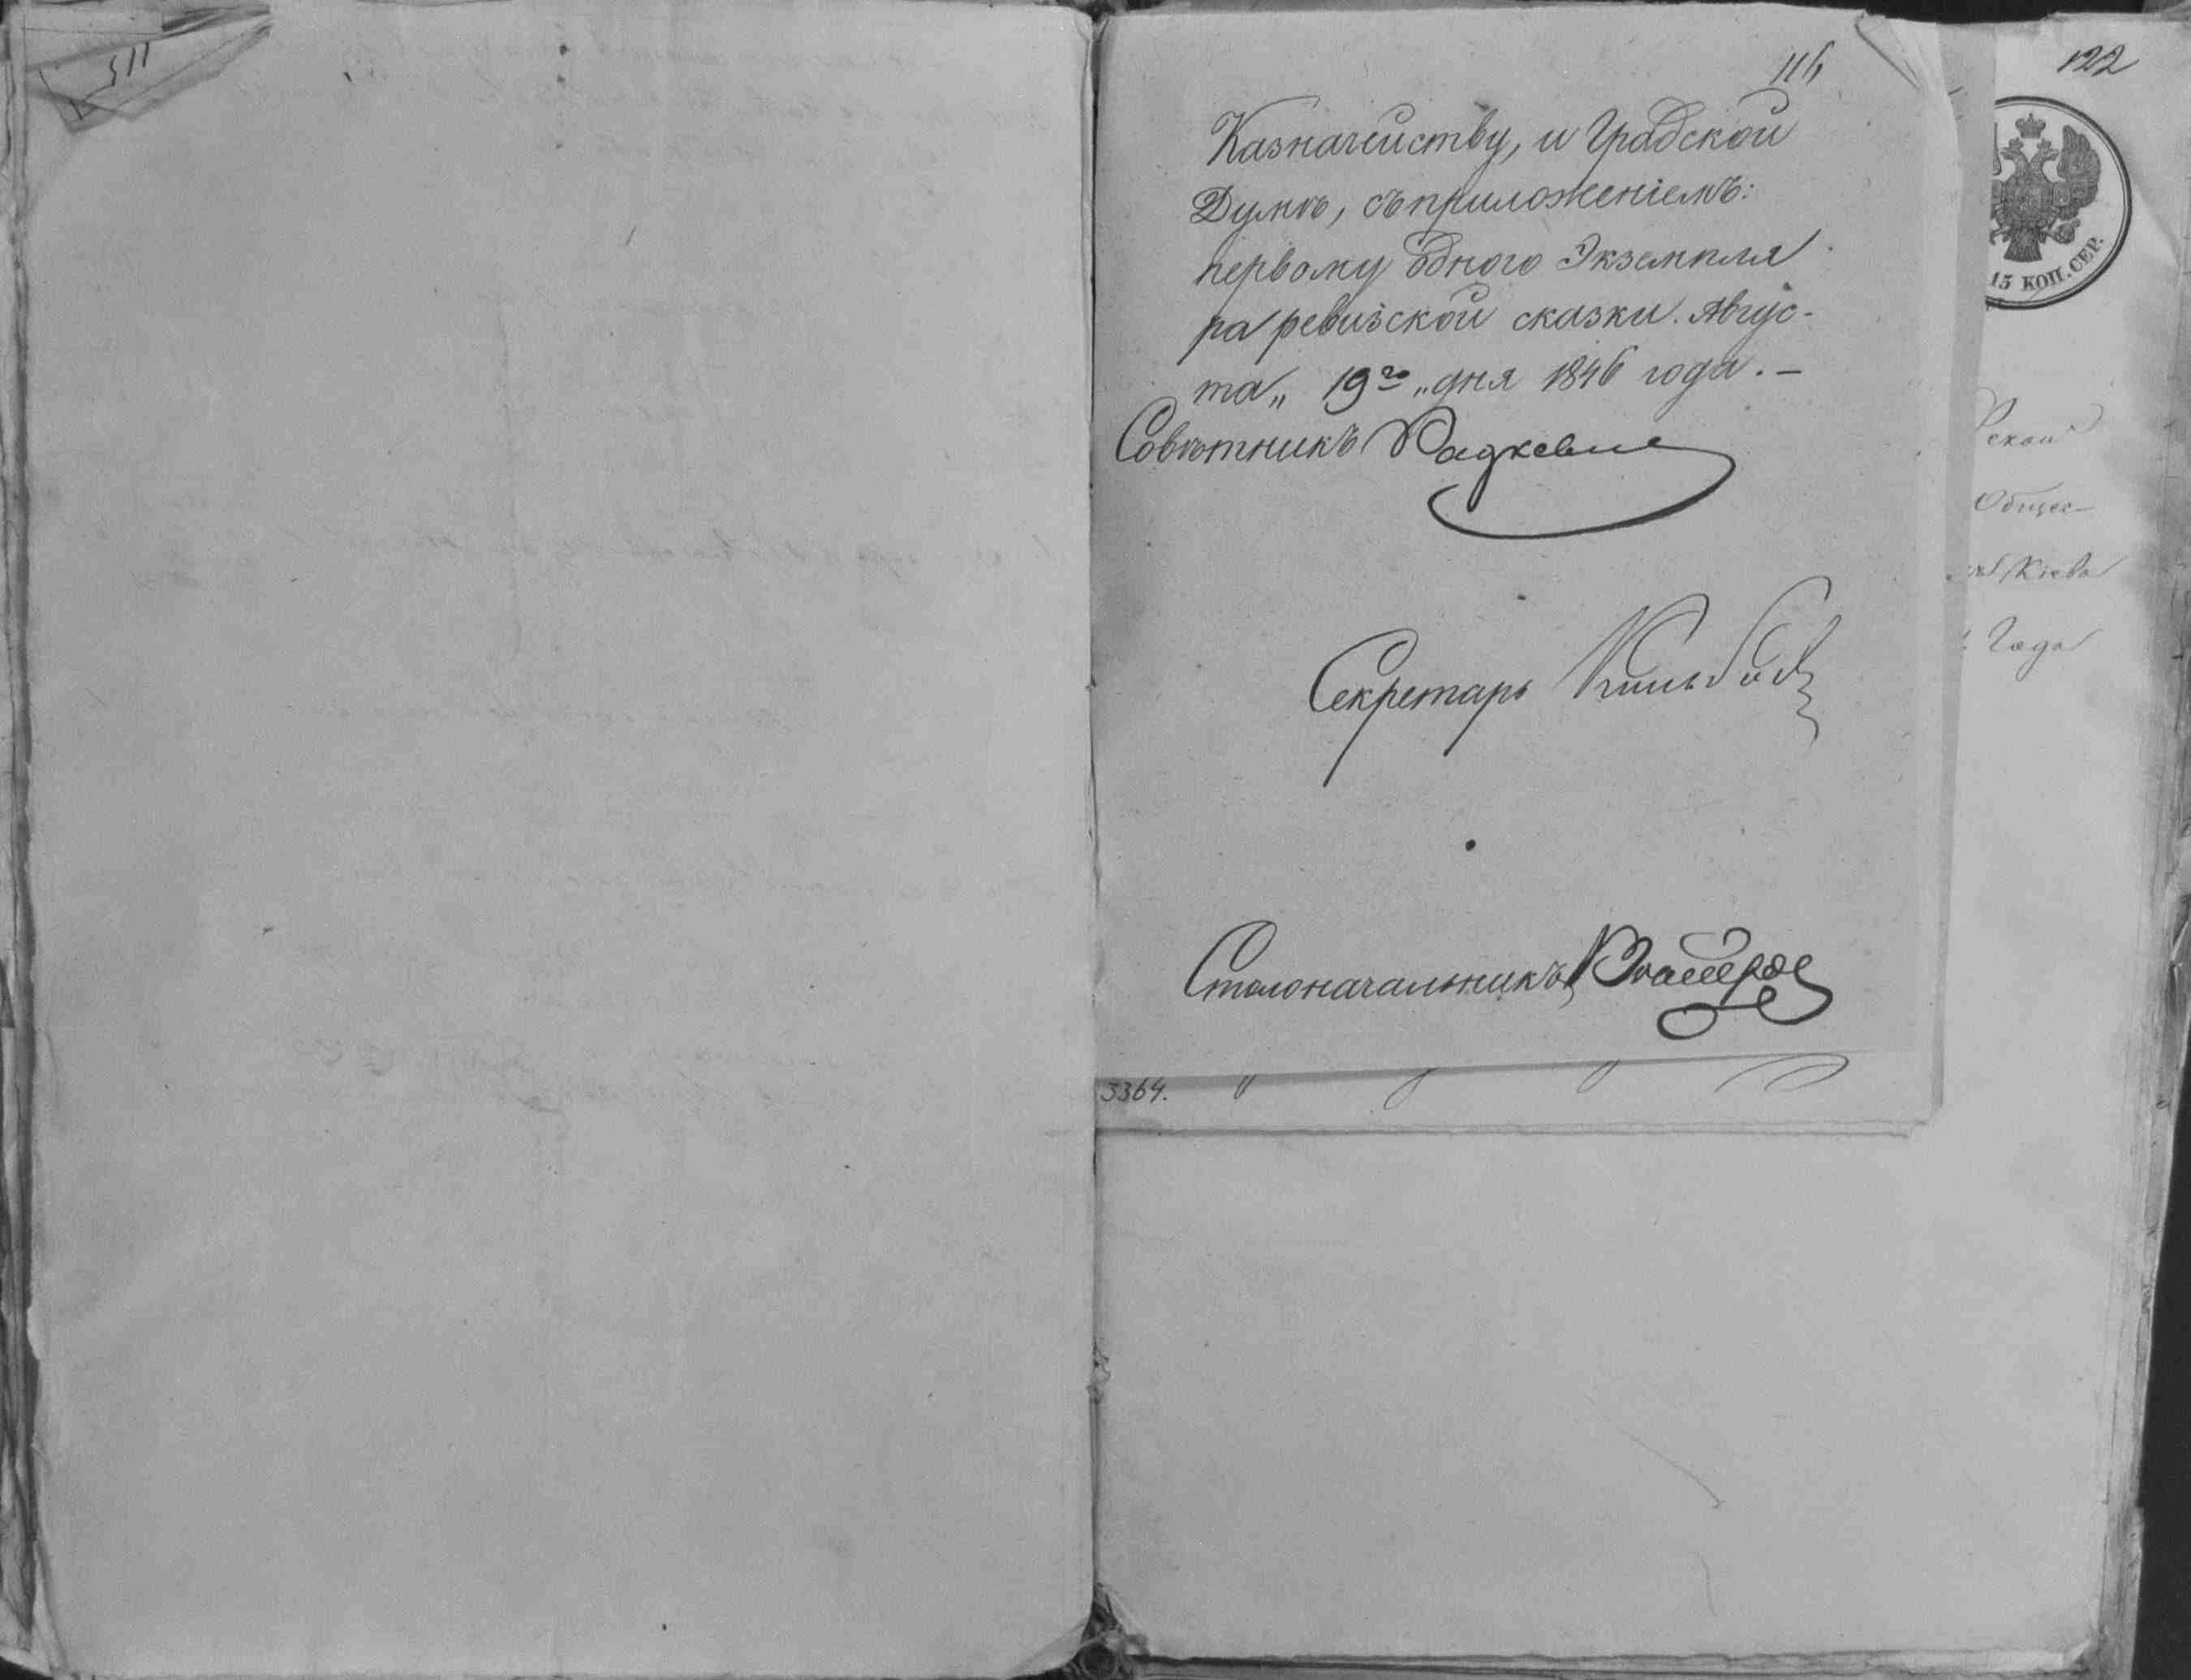 115
116
Казначейству, и Градской
Думѣ, съ приложеніемъ:
первому одного Экземпля
ра ревизской сказки. Авгус-
та „ 19го „ дня 1846 года. —
Совѣтникъ Радкевич
Секретарь
Столоначальникъ
3364.
122
15 КОП. СЕР.
ской
Общес-
Кіева
Года